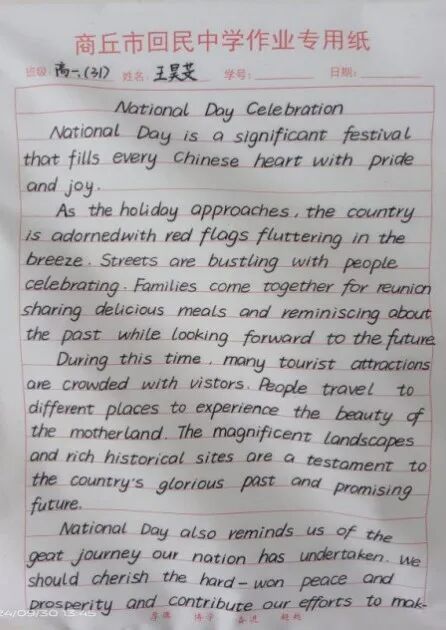 商丘市回民中学作业专用纸
班级: 高一.(31) 姓名: 王昊芠 学号: 日期:
National Day Celebration
National Day is a significant festival
that fills every Chinese heart with pride
and joy.
As the holiday approaches, the country
is adornedwith red flags fluttering in the
breeze. Streets are bustling with people
celebrating. Families come together for reunion
sharing delicious meals and reminiscing about
the past while looking forward to the future.
During this time, many tourist attractions
are crowded with vistors. People travel to
different places to experience the beauty of
the motherland. The magnificent landscapes
and rich historical sites are a testament to
the country's glorious past and promising
future.
National Day also reminds us of the
geat journey our nation has undertaken. We
should cherish the hard-won peace and
prosperity and contribute our efforts to mak-
24/09/30 13:45
李德 博学 奋进 超越